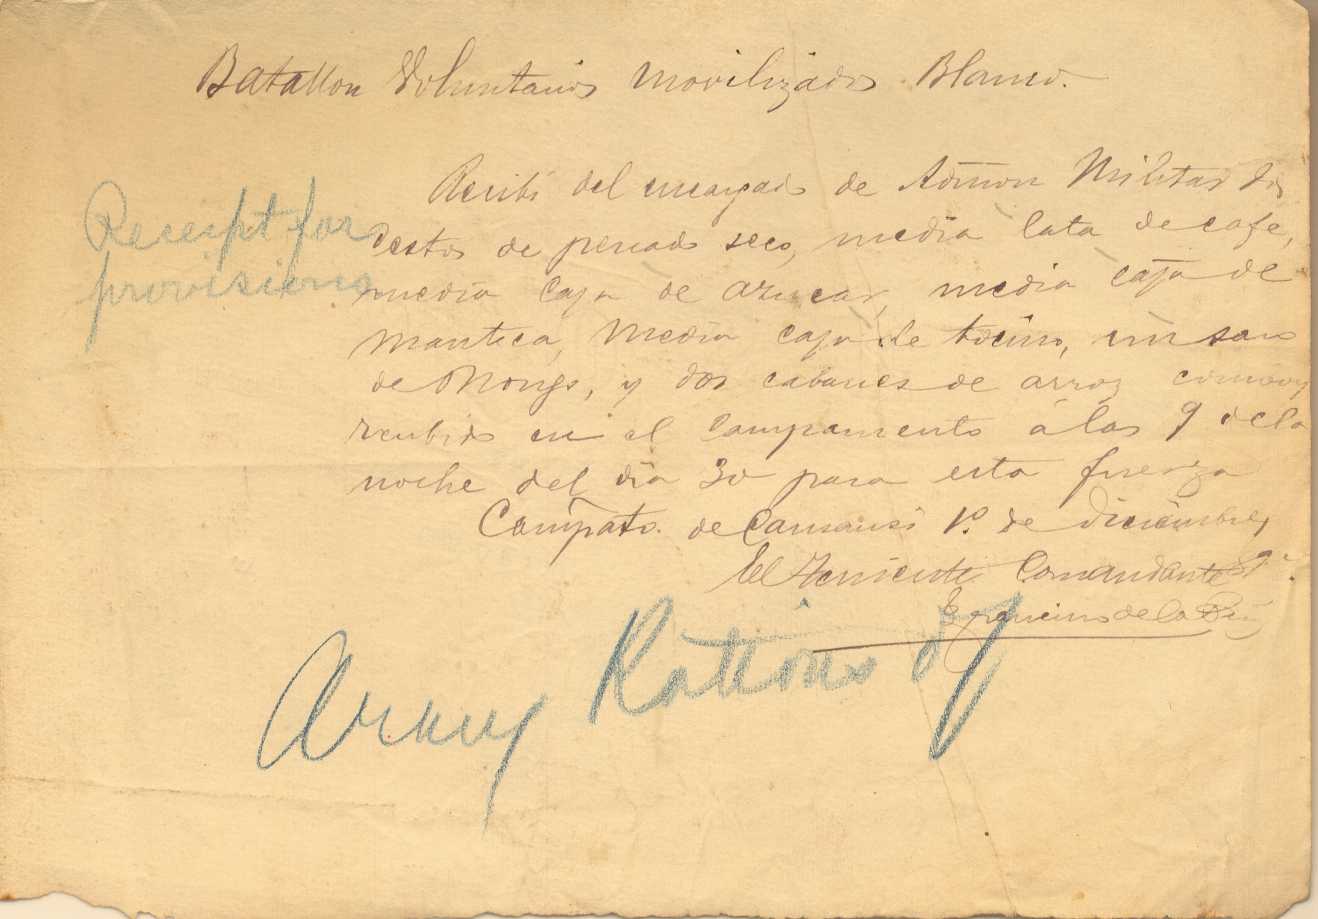 Batallon Voluntarios movilizados Blanco.
Receipt for
provisions
Recibi del encargado de Admon Militar dos
cestos de pescado seco, media lata de cafe,
media caja de azucar, media caja de
manteca, media caja de tocino, un saco
de Mongo, y dos cabanes de arroz
recibido en el campamento á las 9 de la
noche del dia 30 para esta fuerza
Campto. de 1º. de diciembre,
El Teniente Comandante
de la
Army Rations of